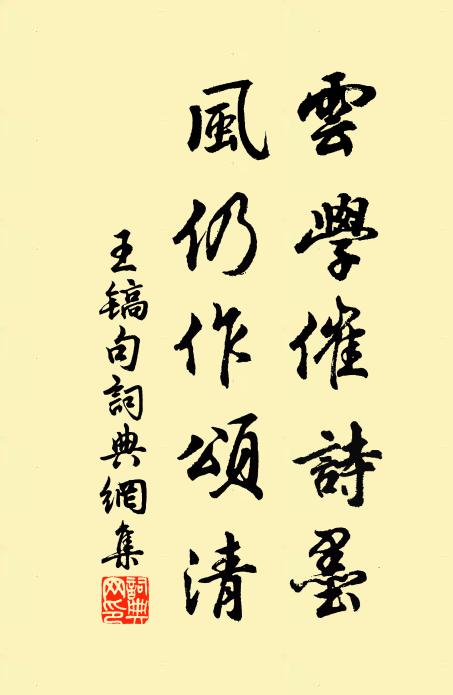 雲學催詩墨
風仍作頌清
王镐句詞典網集
詞典网印